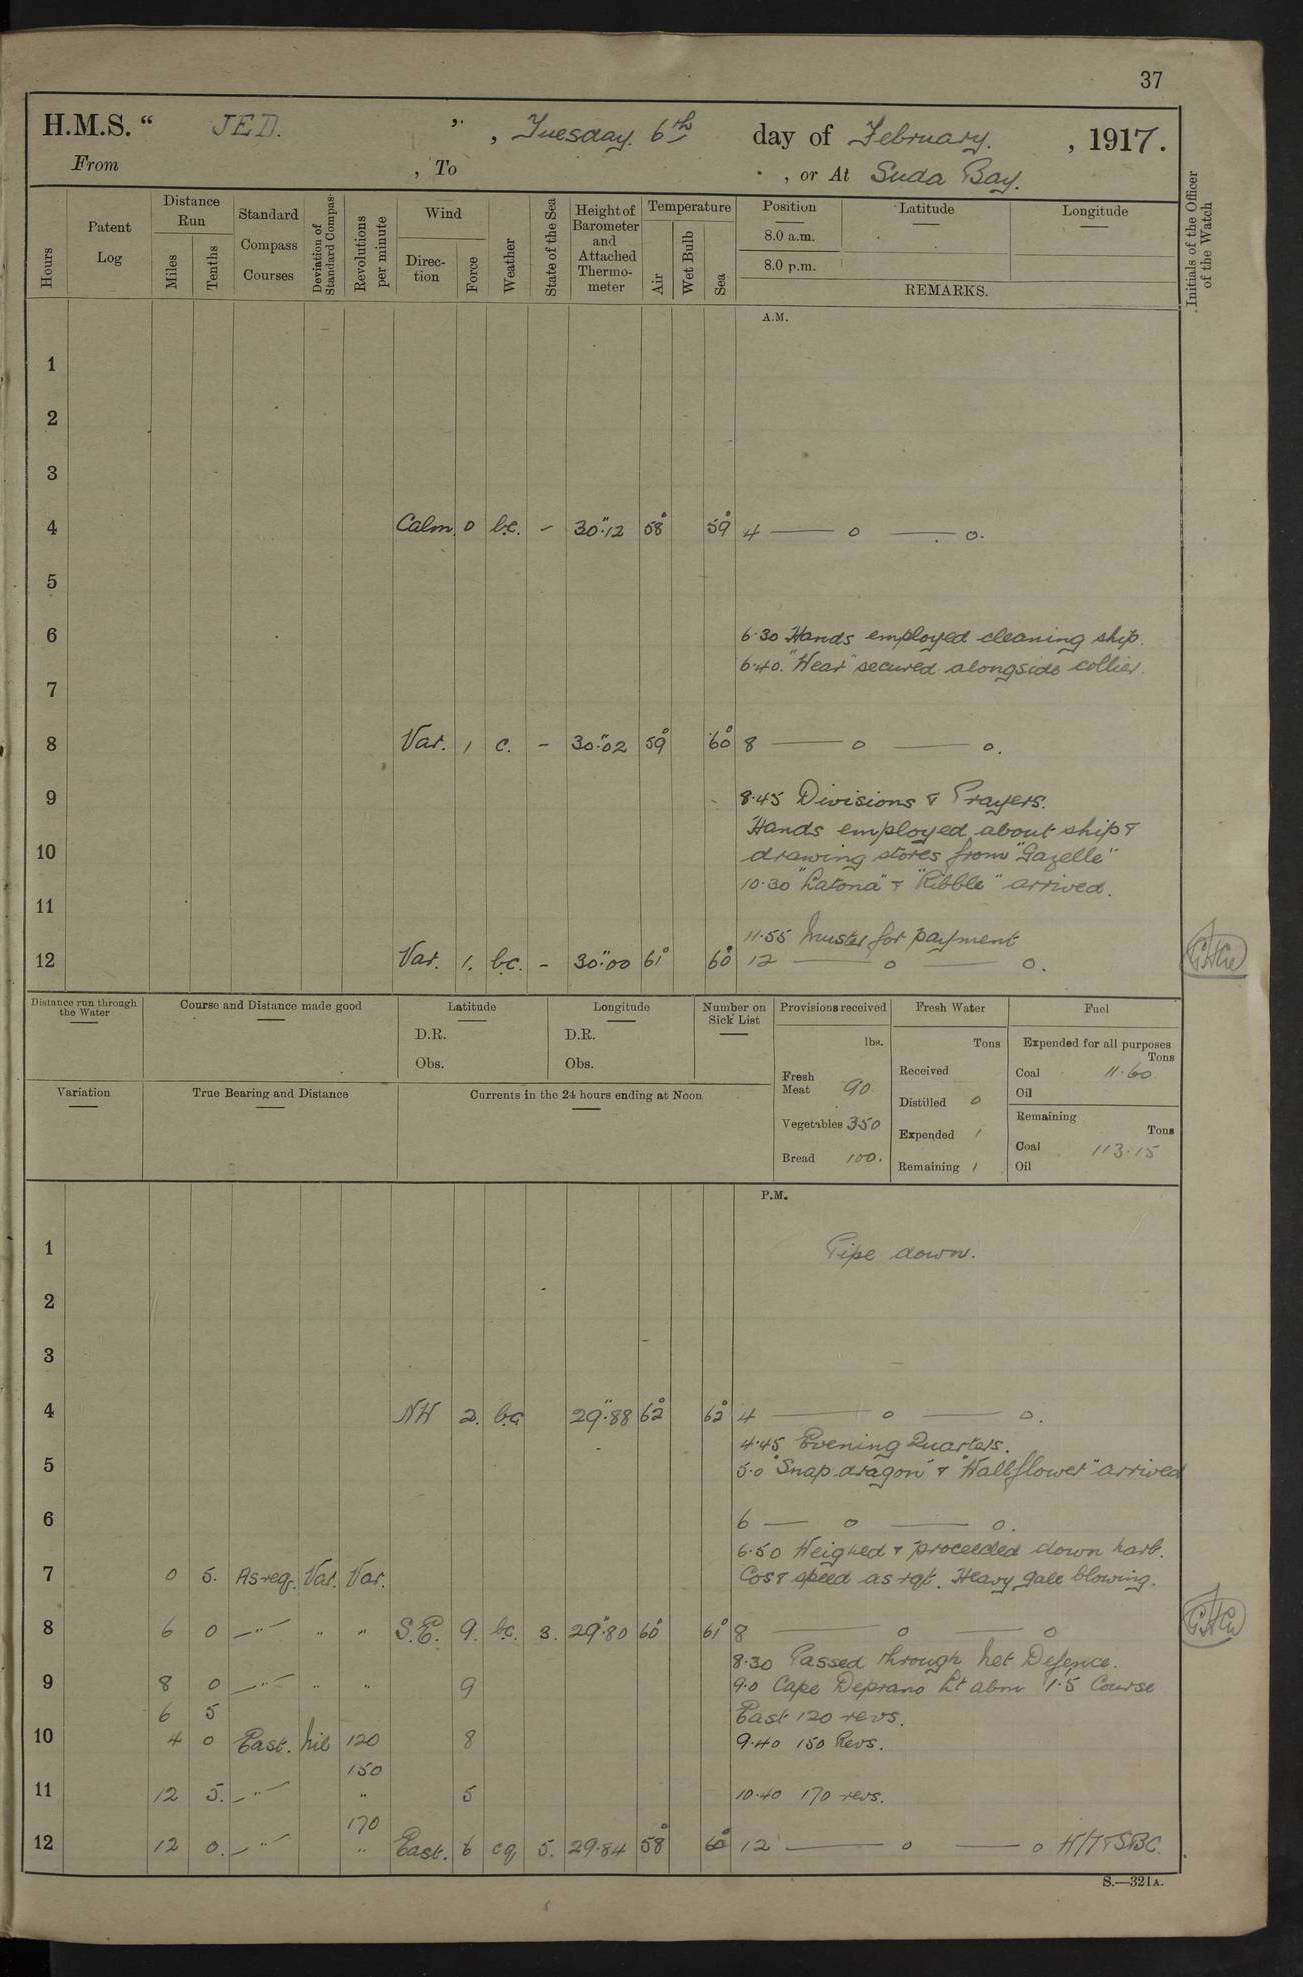 37
H.M.S. “ JED. ” , Tuesday. 6th day of February. , 1917.
From , To , or At Suda Bay.
Hours
Patent Log
Distance Run
Miles
Tenths
Standard Compass Courses
Deviation of Standard Compass
Revolutions per minute
Wind
Direction
Force
Weather
State of the Sea
Height of Barometer and Attached Thermometer
Temperature
Air
Wet Bulb
Sea
Position
8.0 a.m.
8.0 p.m.
Latitude
Longitude
REMARKS.
Initials of the Officer of the Watch
A.M.
1
2
3
4 Calm. 0 b.c. – 30".12 58° 59° 4 — o — o.
5
6 6.30 Hands employed cleaning ship.
6.40. "Wear" secured alongside collier.
7
8 Var. 1 c. – 30".02 59° 60° 8 — o — o.
9 8.45 Divisions & Prayers.
Hands employed about ship &
10 drawing stores from "Gazelle"
10.30 "Latona" & "Ribble" arrived.
11
11.55 Muster for payment
12 Var. 1. b.c. – 30".00 61° 60° 12 — o — o.
Distance run through the Water
Course and Distance made good
Latitude
D.R.
Obs.
Longitude
D.R.
Obs.
Number on Sick List
Provisions received
lbs.
Fresh Meat 90
Vegetables 350
Bread 100.
Fresh Water
Tons
Received
Distilled 0
Expended 1
Remaining 1
Fuel
Expended for all purposes
Tons
Coal 11.60
Oil
Remaining
Tons
Coal 113.15
Oil
Variation
True Bearing and Distance
Currents in the 24 hours ending at Noon
P.M.
1 Pipe down.
2
3
4 NW 2. b.c 29".88 62° 62° 4 — o — o.
4.45 Evening Quarters.
5 5.0 "Snapdragon" & "Wallflower" arrived
6 6 — o — o.
6.50 Weighed & proceeded down harb.
7 0 5. As req. Var. Var. Co & speed as rqt. Heavy gale blowing.
8 6 0 —"— " " S.E. 9. b.c. 3. 29".80 60° 61° 8 — o — o
8.30 Passed through Net Defence.
9 8 0 —"— " " 9 9.0 Cape Deprano Lt abm 1.5 Course
6 5 East 120 revs.
10 4 0 East. Nil 120 8 9.40 150 Revs.
150
11 12 5. —"— " 5 10.40 170 revs.
170
12 12 0. —"— " East. 6 cq 5. 29.84 58° 60° 12 — o — o
S.—321A.